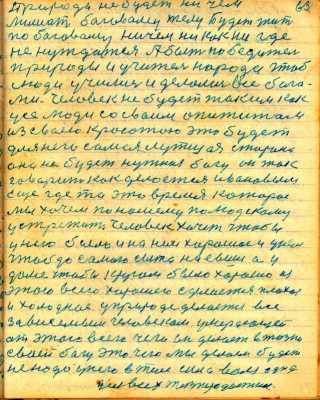 природа не будет ни чем 63
лишат боговому телу будет жит
по боговому ничем ни как ни где
не нуждатся А быт победител
природы и учител народа чтоб
люди училис и делалис все бога-
ми. Человек не будет таким как
усе люди со своим опититом
из своею красотою это будет
для него самая лутшая старана
она не будет нужная богу он так
говарит как делоется Ивановым
еще где та это время которае
мы хочем по нашему по людскому
устретить человек хочет чтобы
у него было и на нем харошое и
чтоб до самого сыта наевши а у
доме чтобы было харашо из
этаго всего харошего сделается плохое
и холодное. у природе делается все
зависемым человеком умерающей
от этого всего чего он делает в
своей богу это чего мы делаем будет
не надо у него в теле сила воли одна
для всех тожпродоктит.